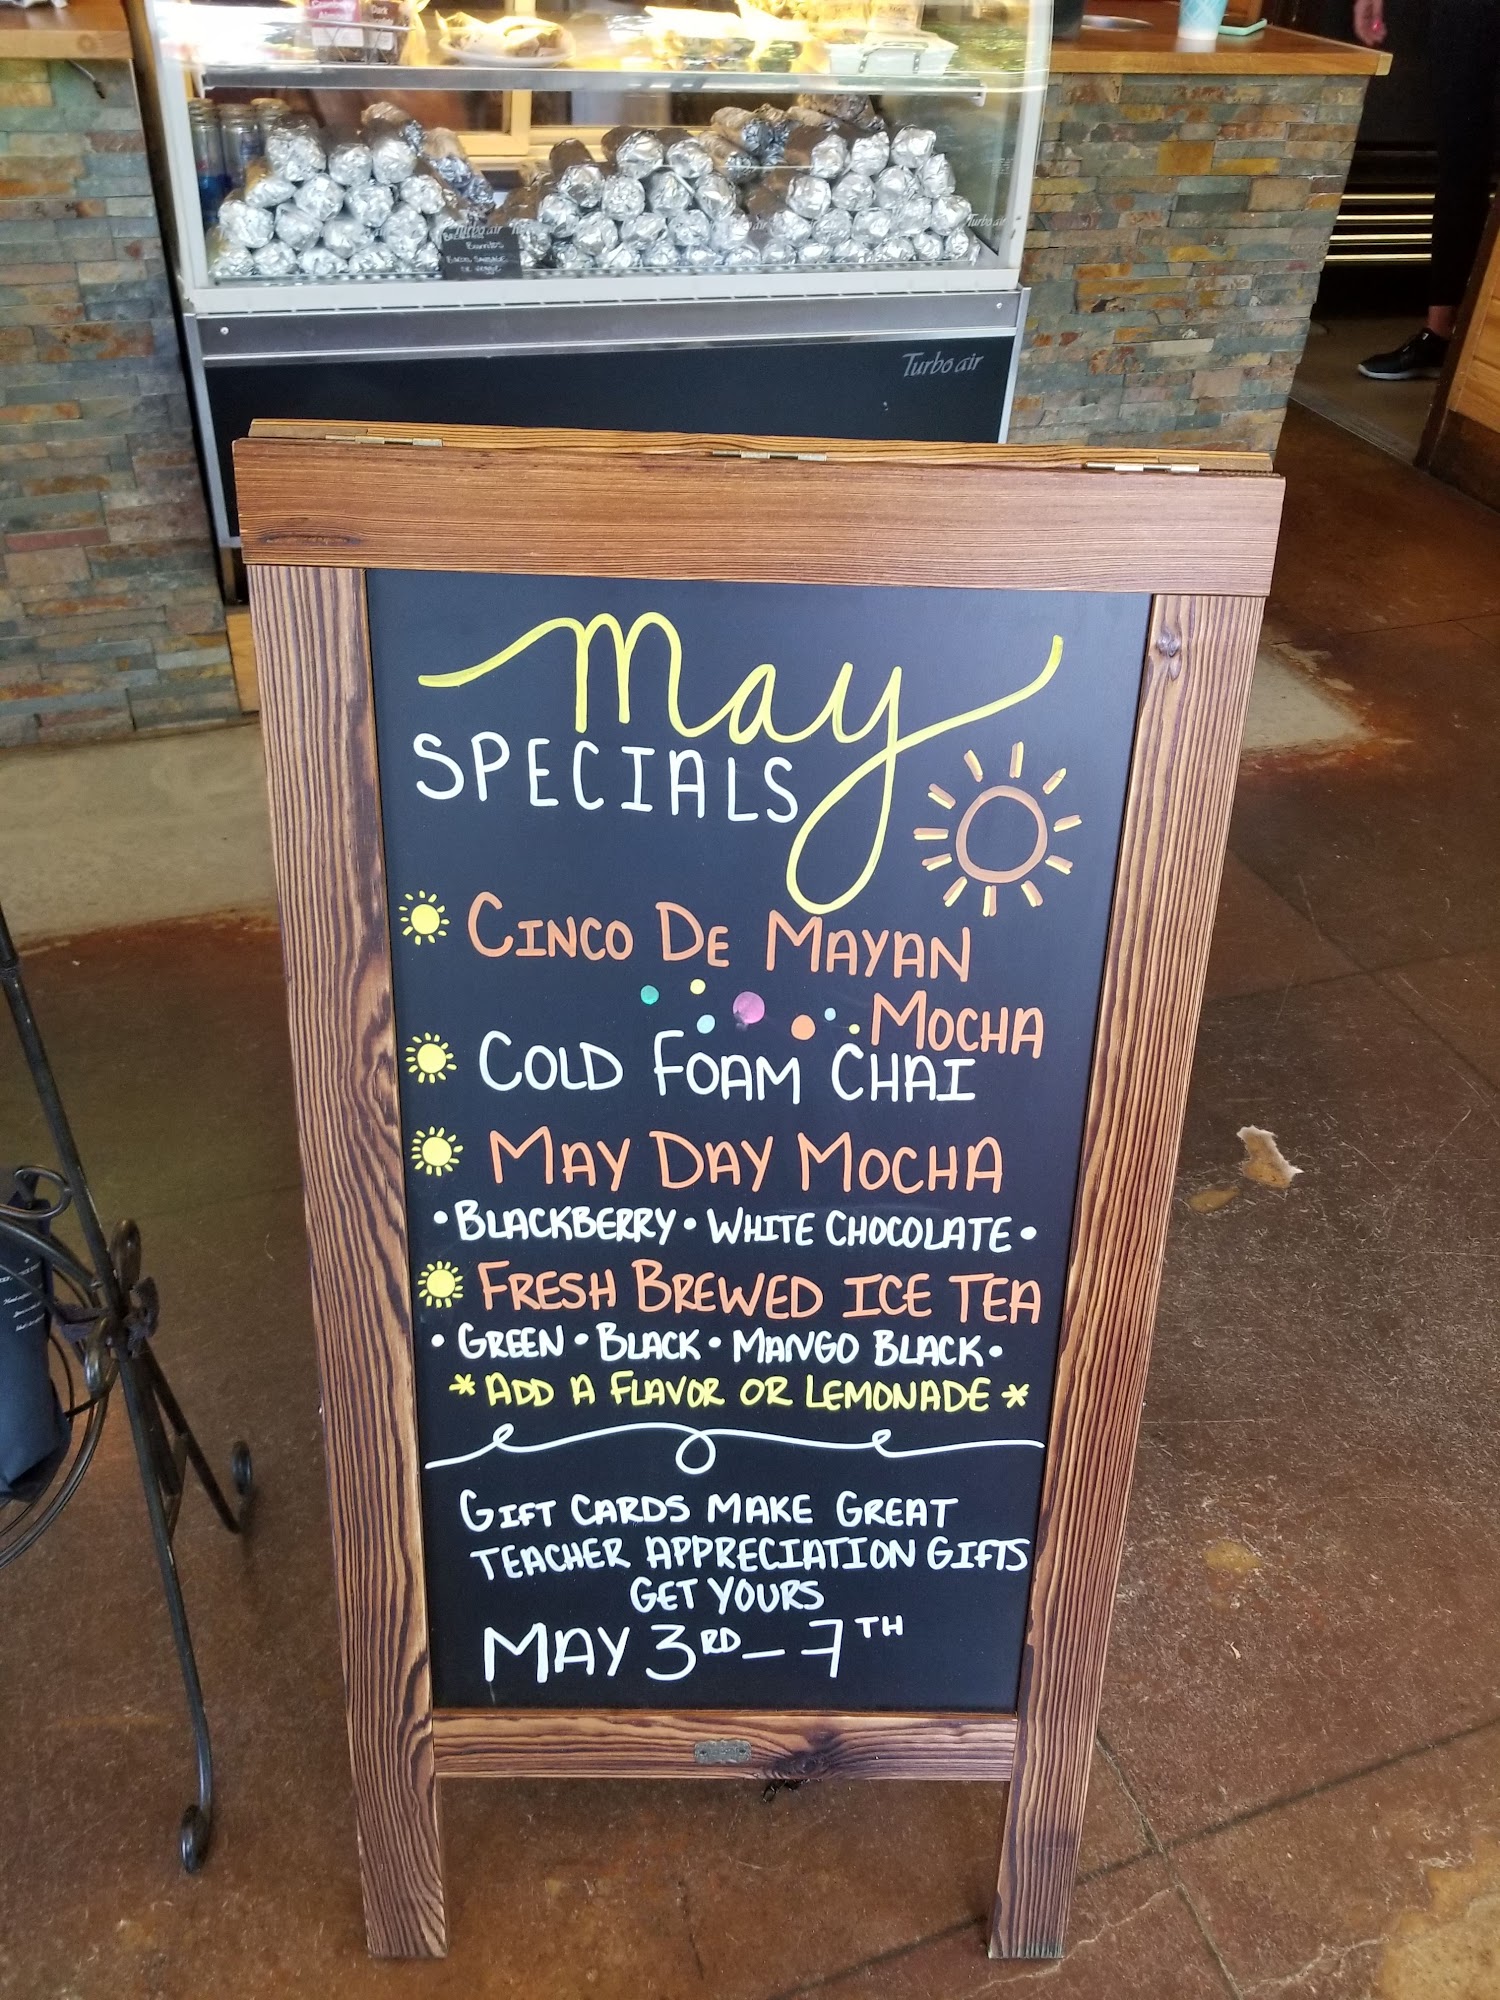 Turbo air
Turbo air
Burritos
Bacon, Sausage
or Veggie
Turbo air
May
SPECIALS
CINCO DE MAYAN
MOCHA
COLD FOAM CHAI
MAY DAY MOCHA
• BLACKBERRY • WHITE CHOCOLATE •
FRESH BREWED ICE TEA
• GREEN • BLACK • MANGO BLACK •
* ADD A FLAVOR OR LEMONADE *
GIFT CARDS MAKE GREAT
TEACHER APPRECIATION GIFTS
GET YOURS
MAY 3RD - 7TH